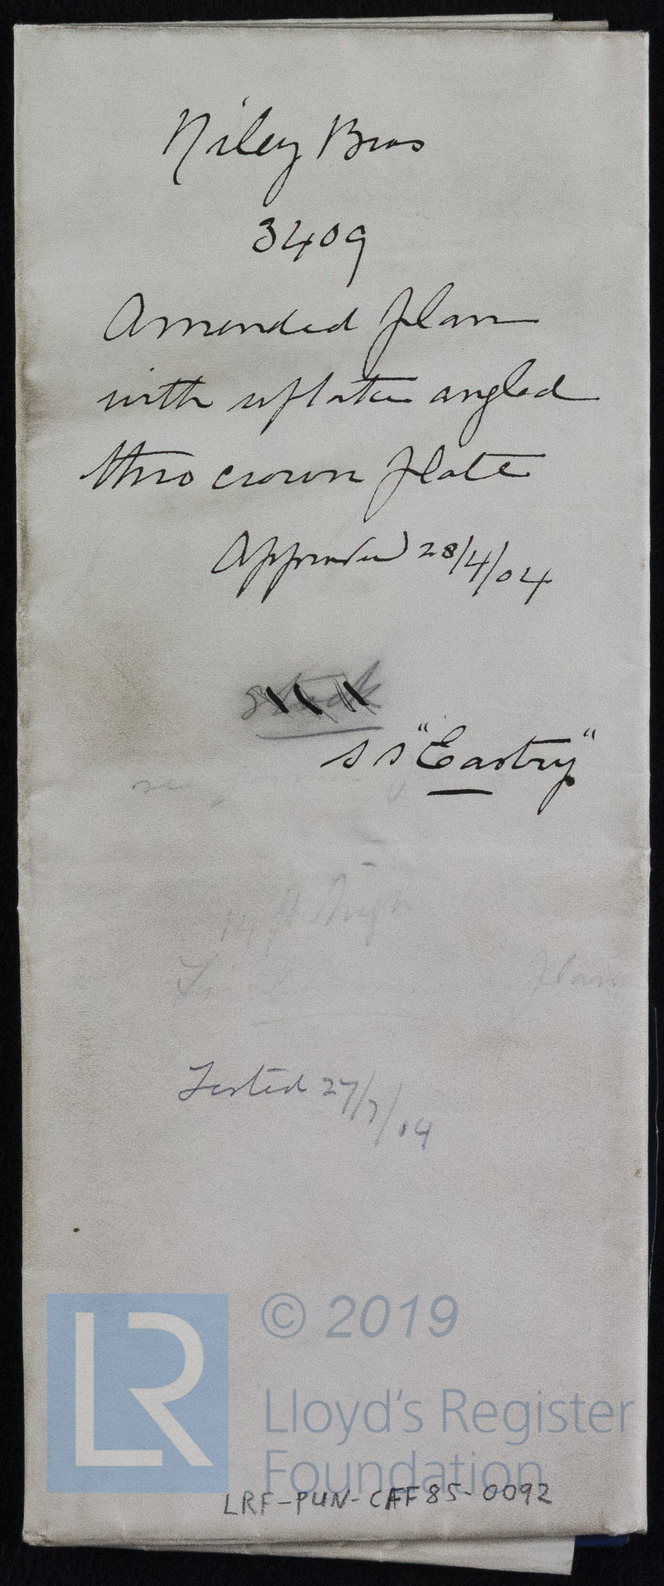 Riley Bros
3409
Amended plan
with uptake angled
thro crown plate
Approved 28/4/04
Stock
SS "Eastry"
14 ft high
plan
Tested 27/7/04
LR
© 2019
Lloyd's Register
Foundation
LRF-PUN-CAFF85-0092